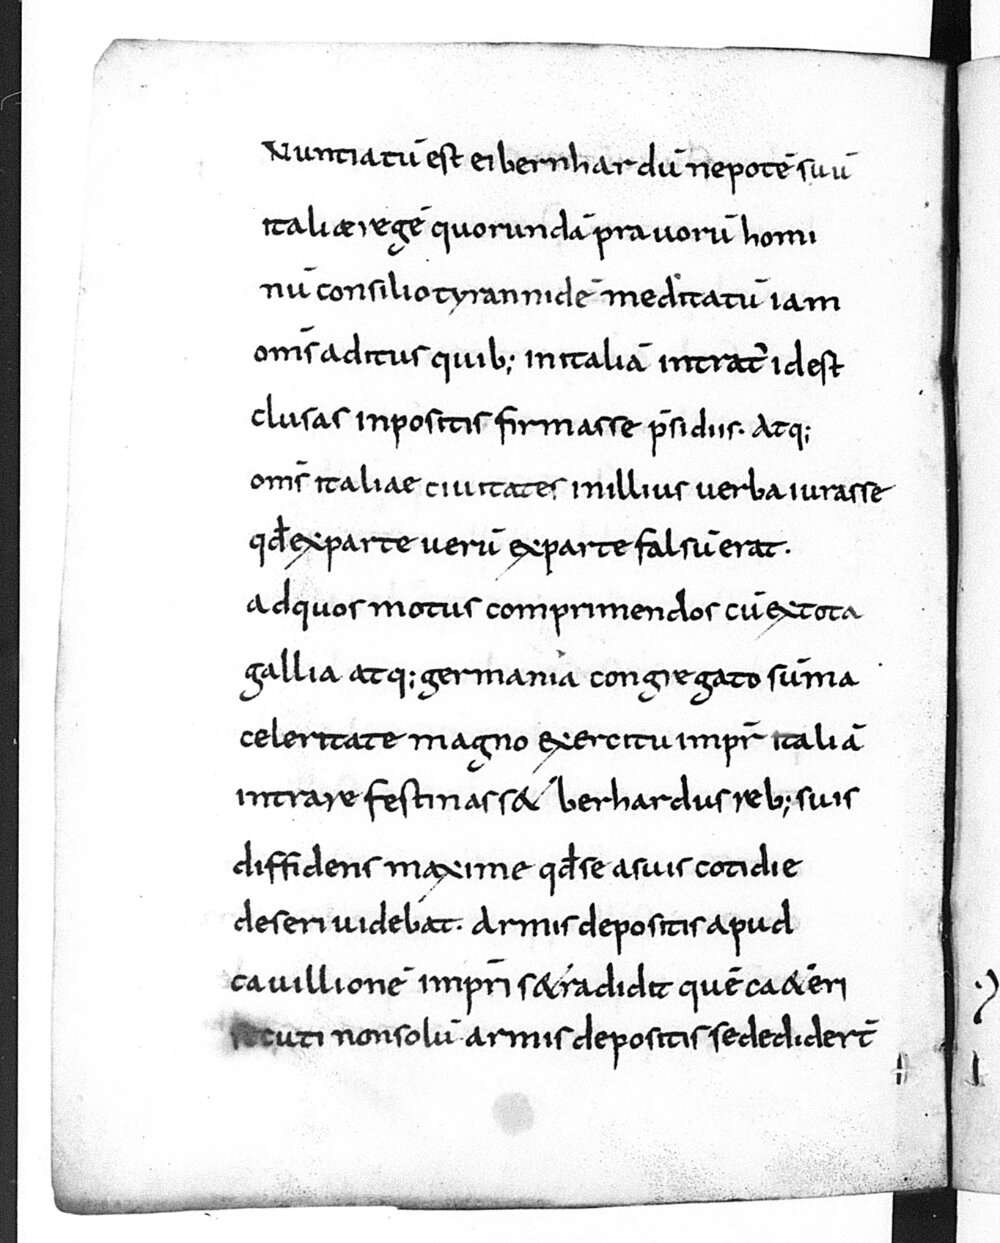 Nuntiatū est ei bernhardū nepotē suū
italiæ regē quorundā prauorū homi
nū consilio tyrannidē meditatū iam
om̄s aditus quib; in italiā intrat᷑ id est
clusas inpositis firmasse p̄sidiis. Atq;
om̄s italiae ciuitates in illius uerba iurasse
qđ ex parte uerū ex parte falsū erat.
ad quos motus comprimendos cū ex tota
gallia atq; germania congregato sūma
celeritate magno exercitu imp̄r italiā
intrare festinass& berhardus reb; suis
diffidens maxime qđ se a suis cotidie
deseri uidebat. Armis depositis apud
cauillionē imp̄ri se tradidit quē cæteri
secuti non solū armis depositis se dedidert̄